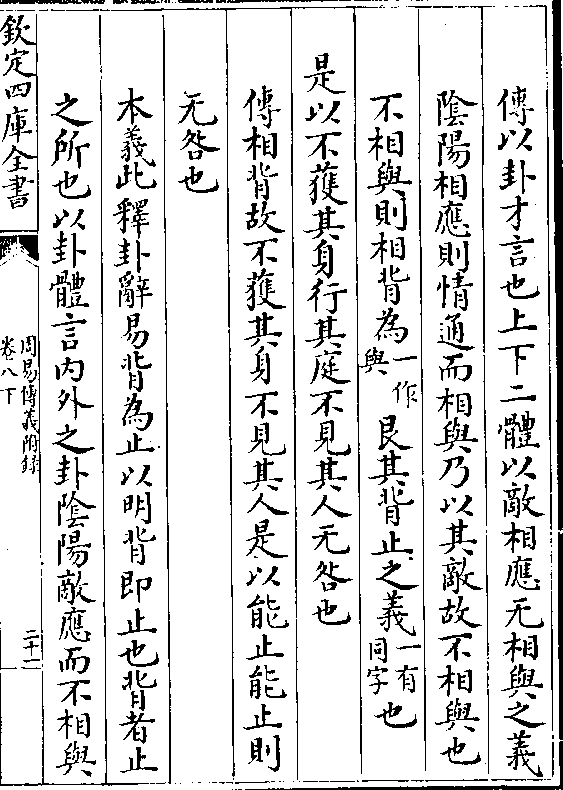 傳以卦才言也上下二體以敵相應无相與之義
陰陽相應則情通而相與乃以其敵故不相與也
不相與則相背為一作與艮其背止之義一有同字也
是以不獲其身行其庭不見其人无咎也
傳相背故不獲其身不見其人是以能止能止則
无咎也
本義此釋卦辭易背為止以明背即止也背者止
之所也以卦體言内外之卦陰陽敵應而不相與
欽定四庫全書
周易傳義附録
卷八下
二十一